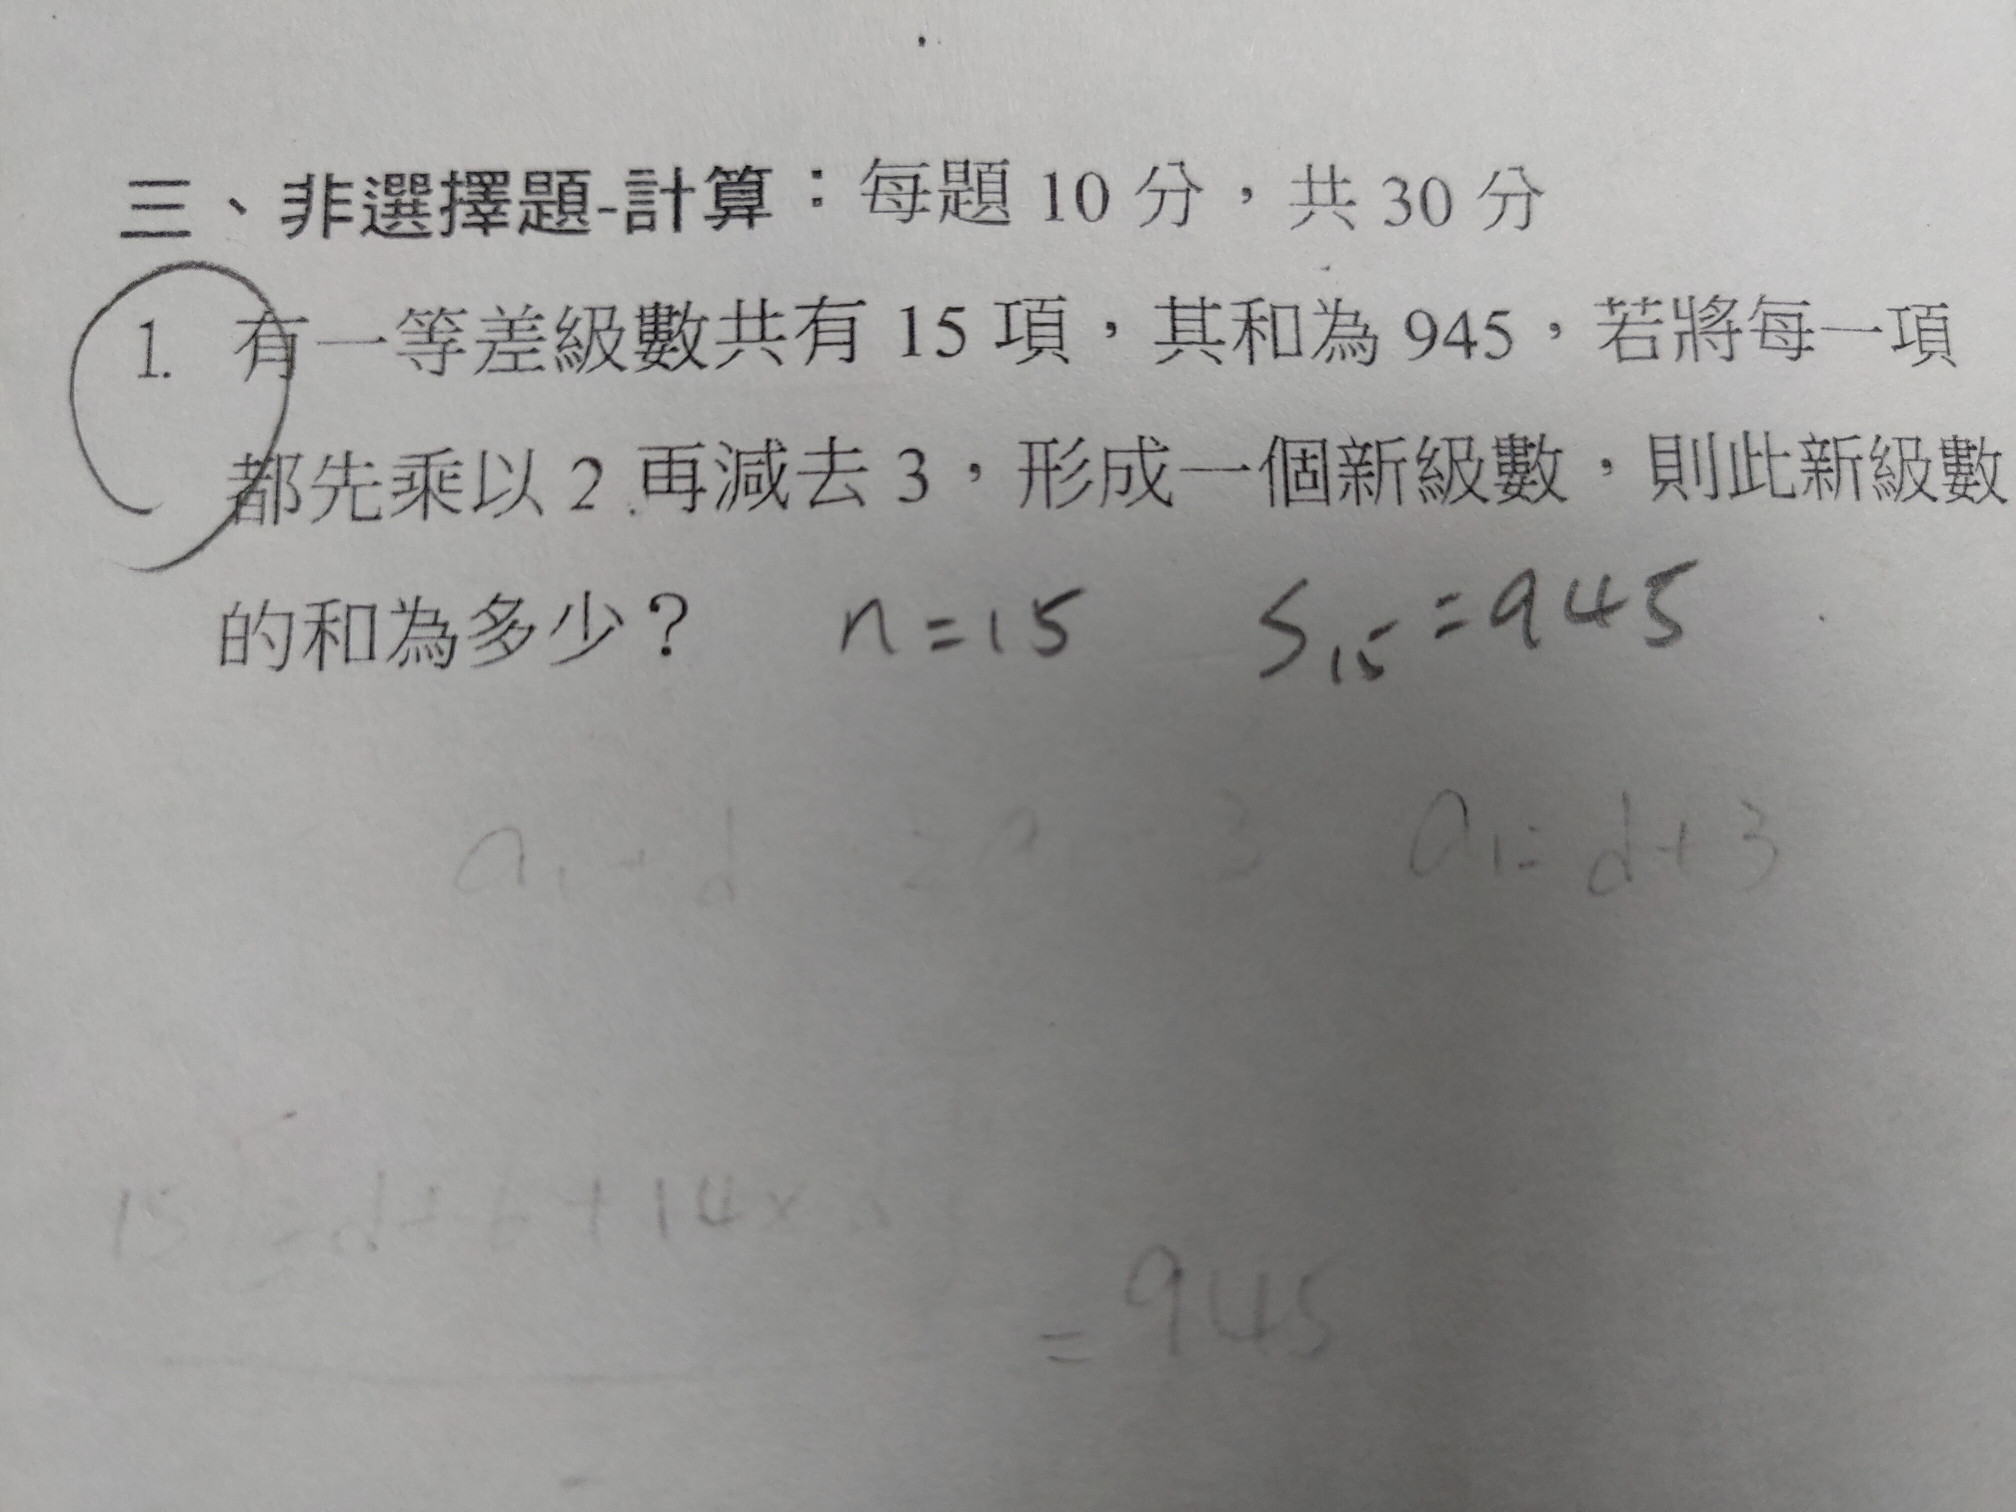 三、非選擇題-計算：每題 10 分，共 30 分
1. 有一等差級數共有 15 項，其和為 945，若將每一項
都先乘以 2 再減去 3，形成一個新級數，則此新級數
的和為多少？ n=15 S₁₅=945
a₁+d a₁=d+3
15 +14×
=945